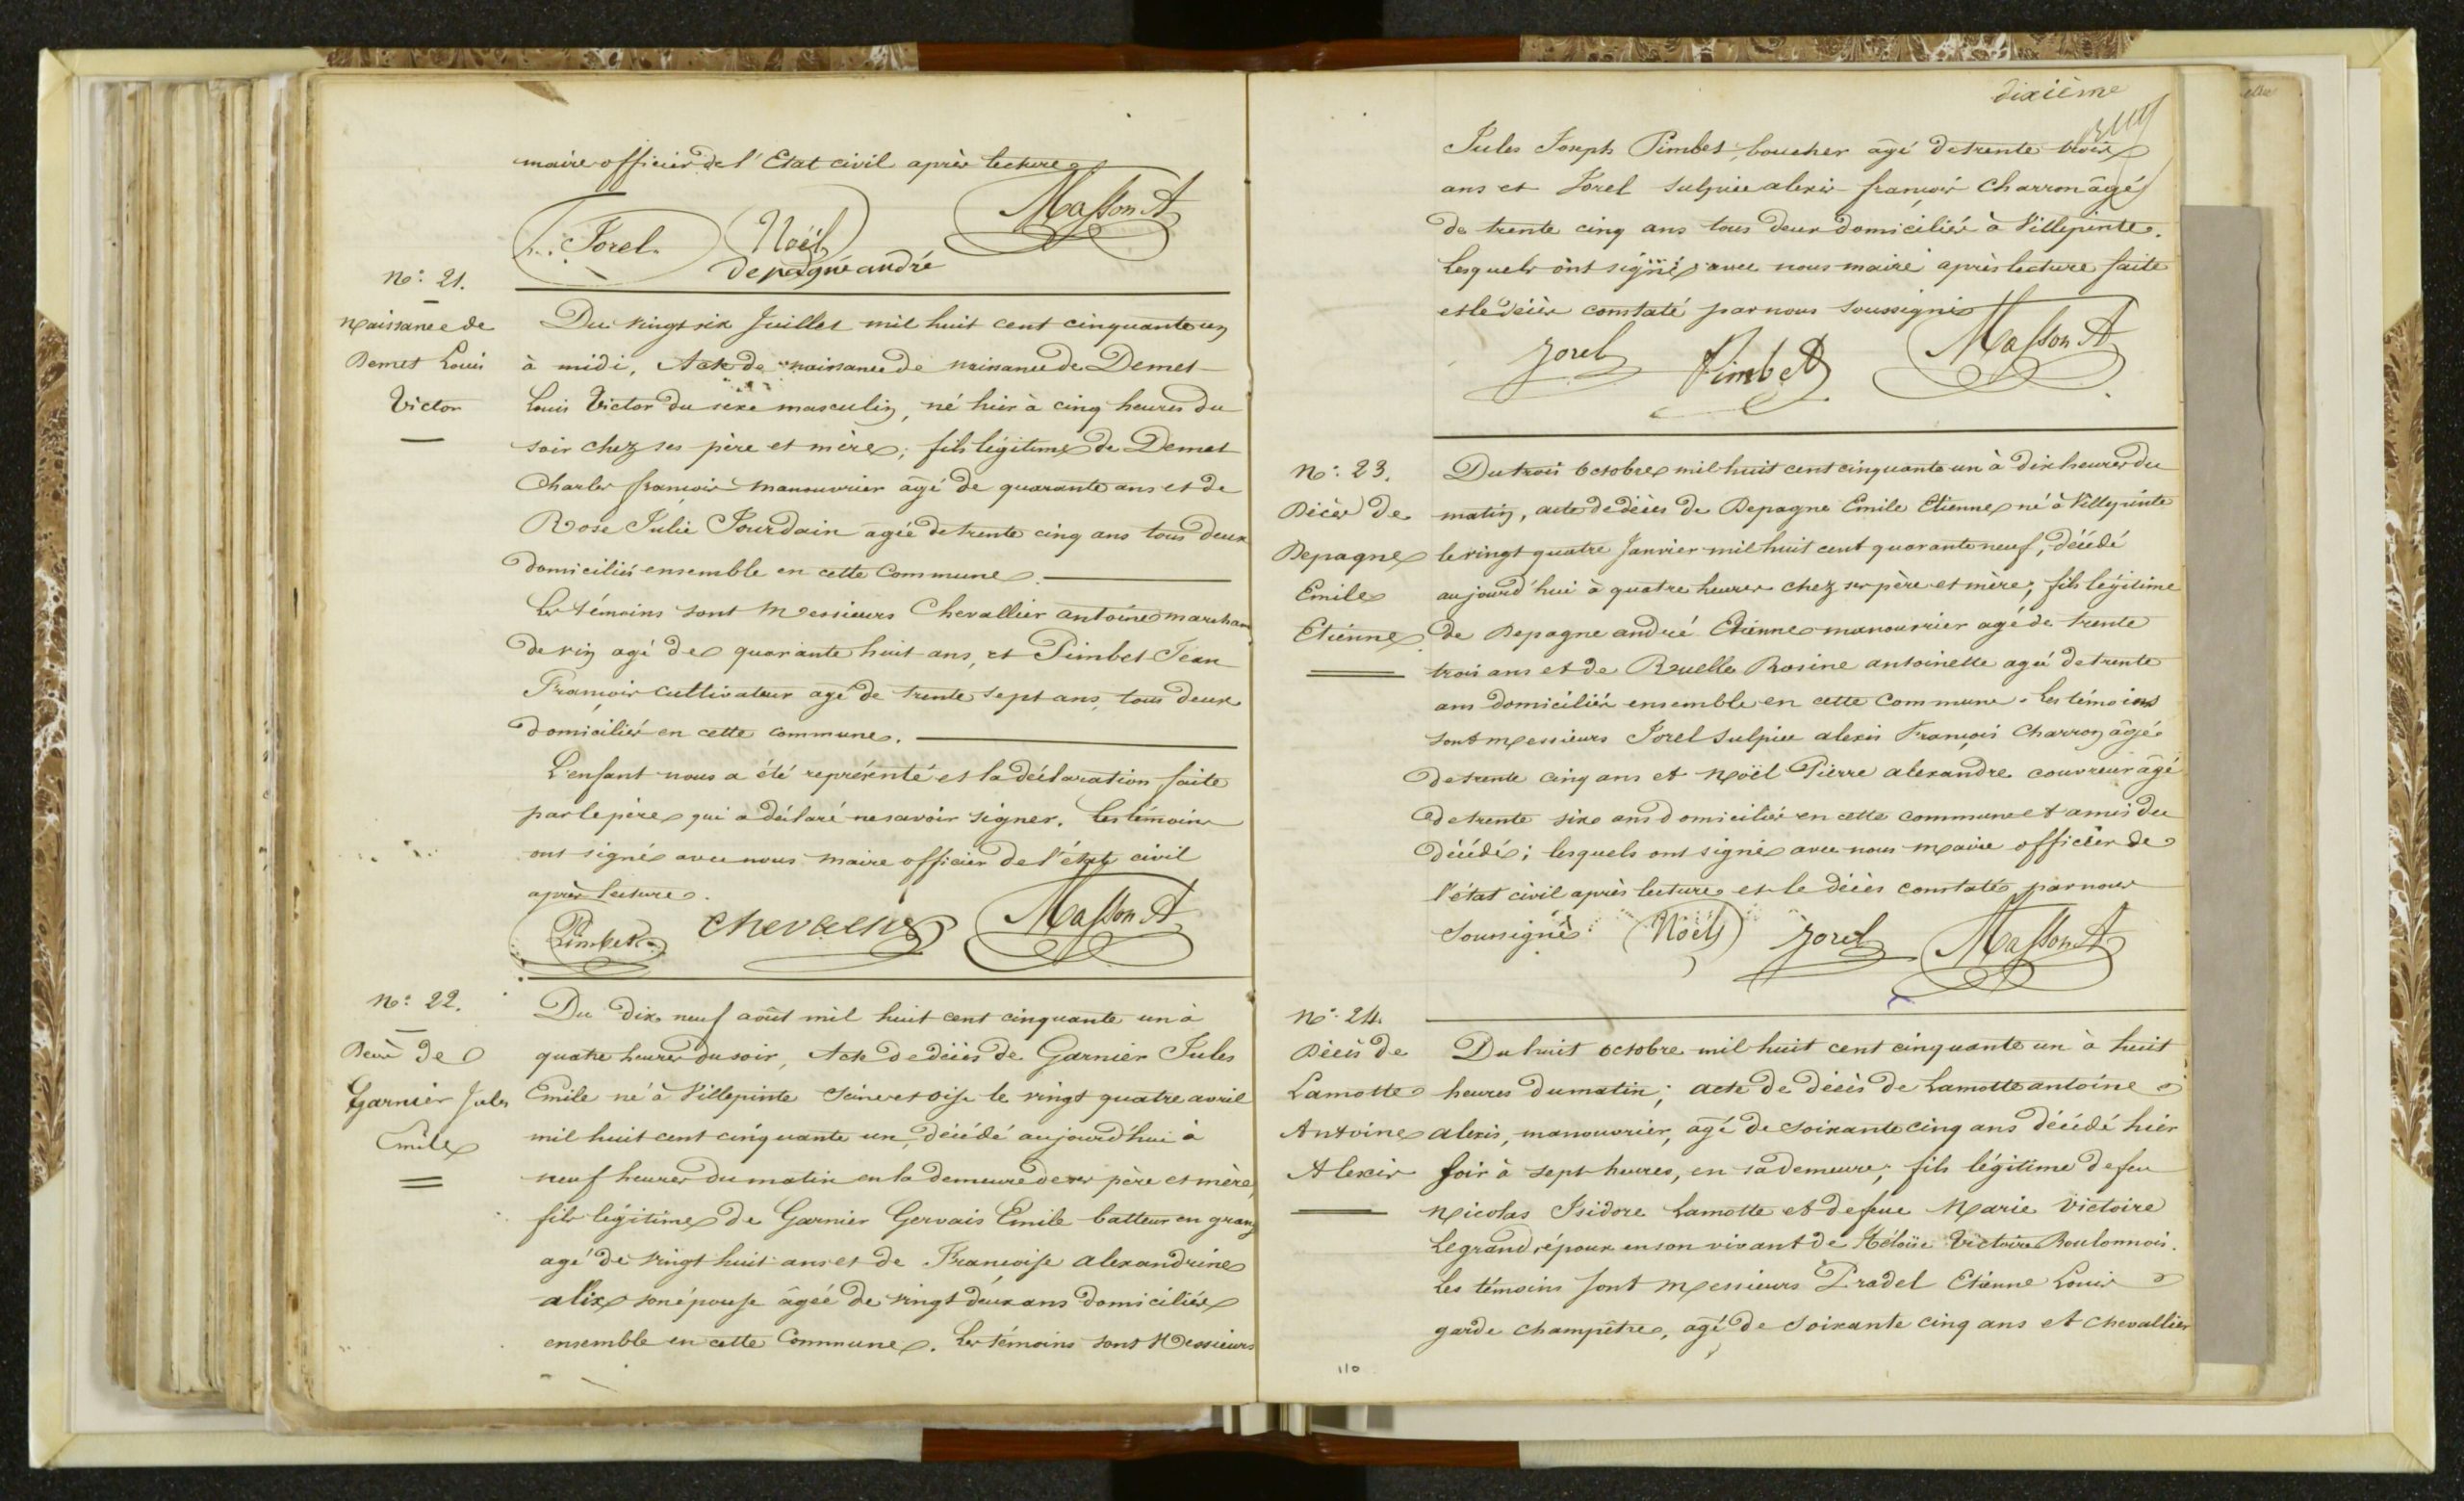 maire officier de l'Etat civil après lecture
Jorel Noël Masson A
depagne andré
No: 21.
Naissance de
Demet Louis
Victor
Du vingt six Juillet mil huit cent cinquante un
à midi, Acte de naissance de naissance de Demet
Louis Victor du sexe masculin, né hier à cinq heures du
soir chez ses père et mère; fils légitime de Demet
Charles françois manouvrier âgé de quarante ans et de
Rose Julie Jourdain agée de trente cinq ans tous deux
domiciliés ensemble en cette Commune.
Les témoins sont Messieurs Chevallier antoine marchand
de vin agé de quarante huit ans, et Pimbet Jean
François cultivateur agé de trente sept ans, tous deux
domiciliés en cette commune.
L'enfant nous a été représenté et la déclaration faite
par le père qui a déclaré ne savoir signer. Les témoins
ont signé avec nous maire officier de l'état civil
après lecture.
Pimbet Chevallier Masson A
No: 22.
Décès de
Garnier Jules
Emile
Du dix neuf août mil huit cent cinquante un à
quatre heures du soir, Acte de décès de Garnier Jules
Emile né à Villepinte Seine et Oise le vingt quatre avril
mil huit cent cinquante un, décédé aujourd'hui à
neuf heures du matin en la demeure de ses père et mère,
fils légitime de Garnier Gervais Emile batteur en grange
agé de vingt huit ans et de Françoise alexandrine
alix son épouse âgée de vingt deux ans domiciliés
ensemble en cette Commune. Les témoins sont Messieurs
dixième
Jules Joseph Pimbet, boucher âgé de trente trois
ans et Jorel sulpice alexis françois Charron âgé
de trente cinq ans tous deux domiciliés à Villepinte.
lesquels ont signé avec nous maire après lecture faite
et le décès constaté par nous soussigné
Jorel Pimbet Masson A
No: 23.
Décès de
Depagne
Emile
Etienne
Du trois octobre mil huit cent cinquante un à dix heures du
matin, acte de décès de Depagne Emile Etienne né à Villepinte
le vingt quatre Janvier mil huit cent quarante neuf, décédé
aujourd'hui à quatre heures chez ses père et mère; fils légitime
de Depagne andré Etienne manouvrier agé de trente
trois ans et de Ruelle Rosine antoinette agée de trente
ans domiciliés ensemble en cette Commune. Les témoins
sont Messieurs Jorel sulpice alexis François Charron âgé
de trente cinq ans et Noël Pierre alexandre couvreur âgé
de trente six ans domiciliés en cette commune et amis du
décédé; lesquels ont signé avec nous Maire officier de
l'état civil après lecture et le décès constaté par nous
soussigné. Noël Jorel Masson A
No: 24.
Décès de
Lamotte
Antoine
Alexis
Du huit octobre mil huit cent cinquante un à huit
heures du matin; acte de décès de Lamotte antoine
alexis, manouvrier, agé de soixante cinq ans décédé hier
soir à sept heures, en sa demeure; fils légitime de feu
Nicolas Isidore Lamotte et de feue Marie Victoire
Legrand, époux en son vivant de Héloïse Victoire Boulonnois.
Les témoins sont Messieurs Pradel Etienne Louis
garde champêtre, agé de soixante cinq ans et chevallier
110